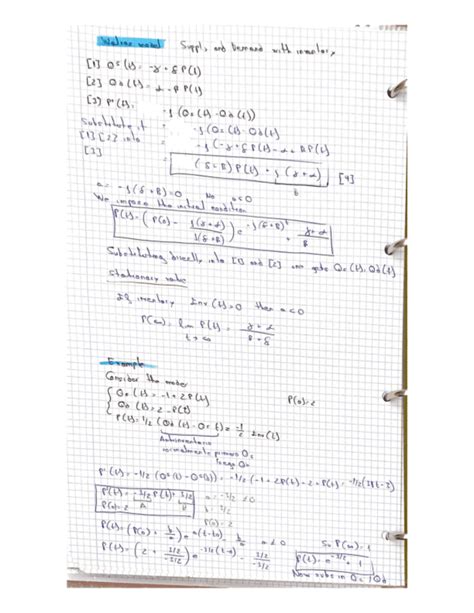 Walras model Supply and Demand with inventory
[1] Os(t) = -γ + δ P(t)
[2] Od(t) = α - β P(t)
[3] P'(t) = -j (Os(t) - Od(t))
Substituting it = -j (Os(t) - Od(t))
[1] [2] into = -j (-γ + δ P(t) - α + β P(t))
[3] (δ+β) P(t) + j (γ+α) [4]
b
a = -j (δ+β) = 0 No a<0
We impose the initial condition
P(t) = (P(0) - j(γ+α) / j(δ+β)) e -j(δ+β)t + γ+α / β
Substituting directly into [1] and [2] we gate Os(t), Od(t)
Stationary value
If inventory Inv(t)=0 then a<0
P(∞) = lim P(t) = γ+α / β+δ
t→∞
Example
Consider the model
Os(t) = -1+2P(t)
Od(t) = 2-P(t) P(0)=2
P'(t) = 1/2 (Od(t) - Os(t)) = -1/2 Inv(t)
normalmente primero Os
luego Od
P'(t) = -1/2 (Os(t) - Od(t)) = -1/2 (-1+2P(t) - 2+P(t)) = -1/2 (3P(t)-3)
P'(t) = -3/2 P(t) + 3/2 a = -3/2 ≠0
P(0)=2 A B b = 3/2
P(0)=2
P(t) = (P(0) + b/a) e a(t-t0) - b/a a≠0 So P(∞)=1
P(t) = (2 + 3/2 / -3/2) e -3/2(t-0) - 3/2 / -3/2 P(t) = e -3/2 t + 1
Now subs in Os, Od